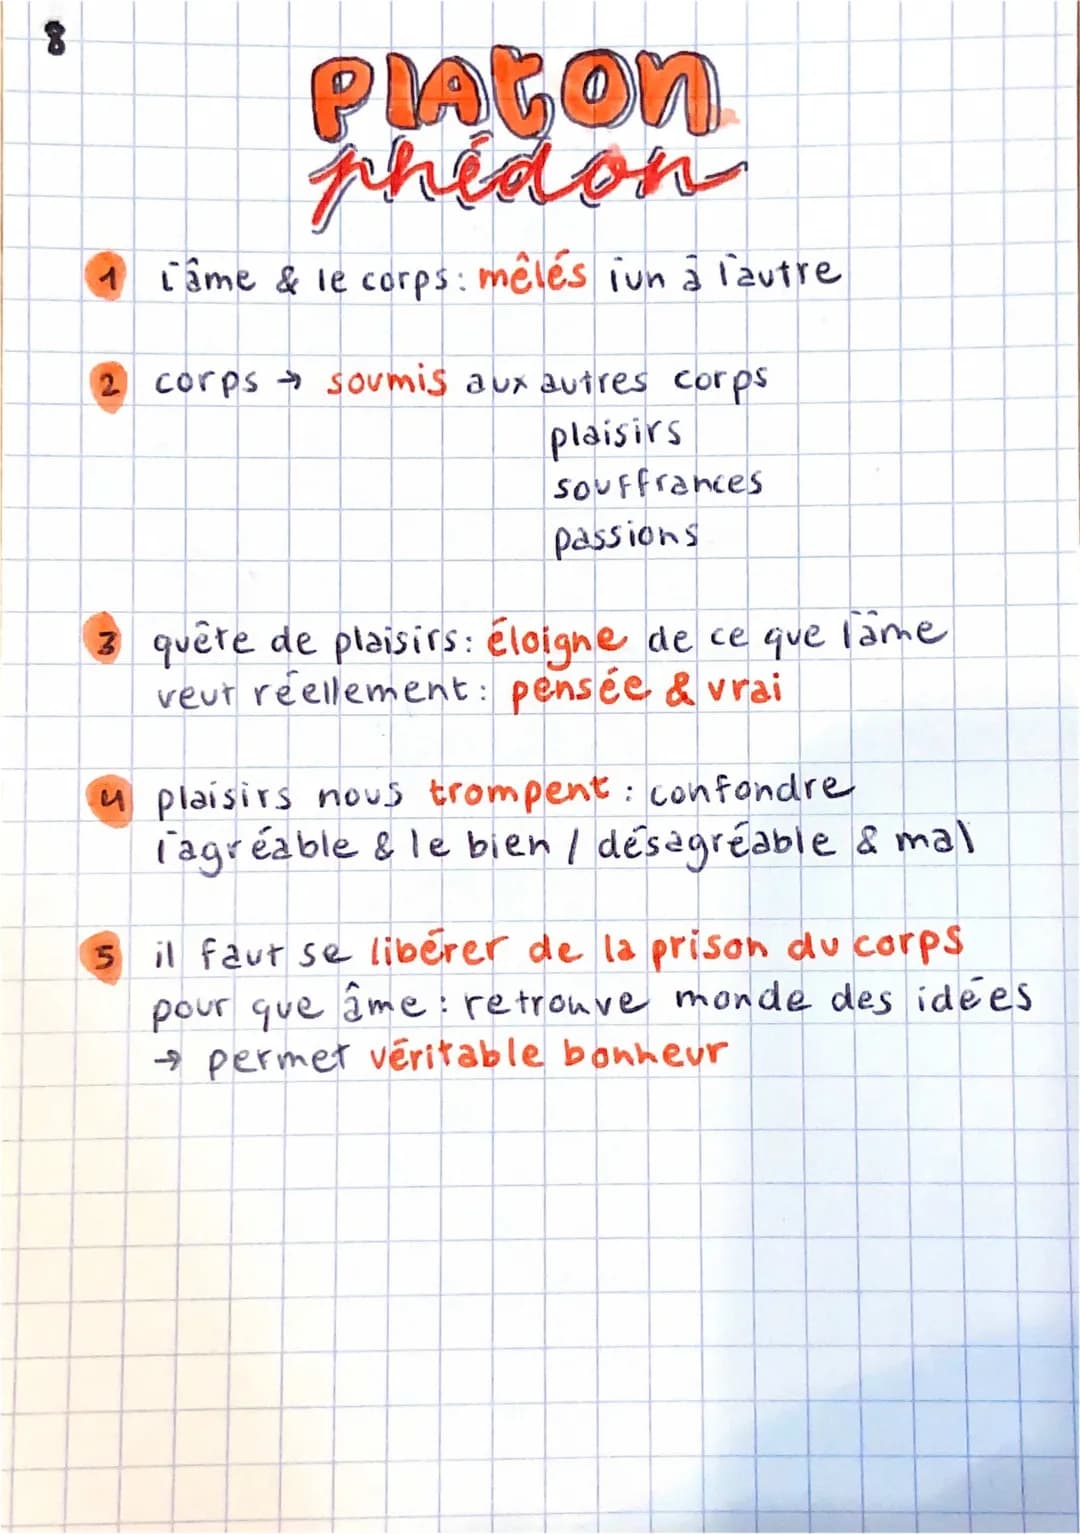 8
PlAton
phédon
1 l'âme & le corps: mêlés l'un à l'autre
2 corps → soumis aux autres corps
plaisirs
souffrances
passions
3 quête de plaisirs: éloigne de ce que l'âme
veut réellement: pensée & vrai
4 plaisirs nous trompent : confondre
l'agréable & le bien / désagréable & mal
5 il faut se libérer de la prison du corps
pour que âme : retrouve monde des idées
→ permet véritable bonheur